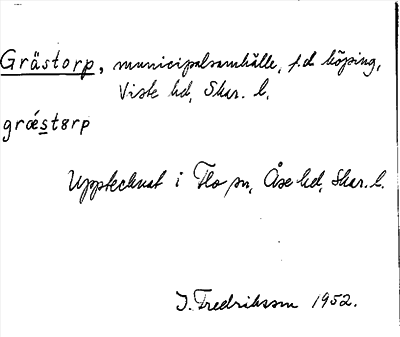 Grästorp, municipalsamhälle, f.d köping,
Viste hd, Skar. l.
grǽstørp
Upptecknat i Flo sn, Åse hd, Skar. l.
I. Fredriksson 1952.